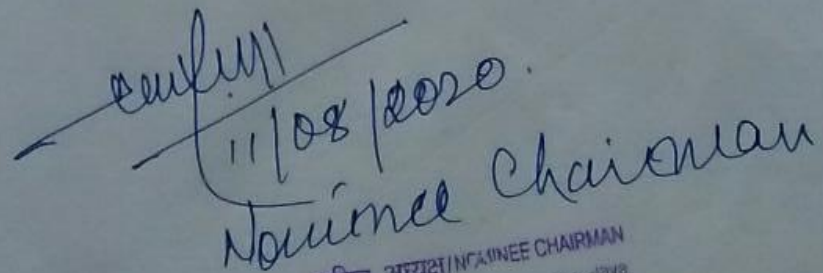 11/08/2020.
Nominee Chairman
अध्यक्ष/NOMINEE CHAIRMAN